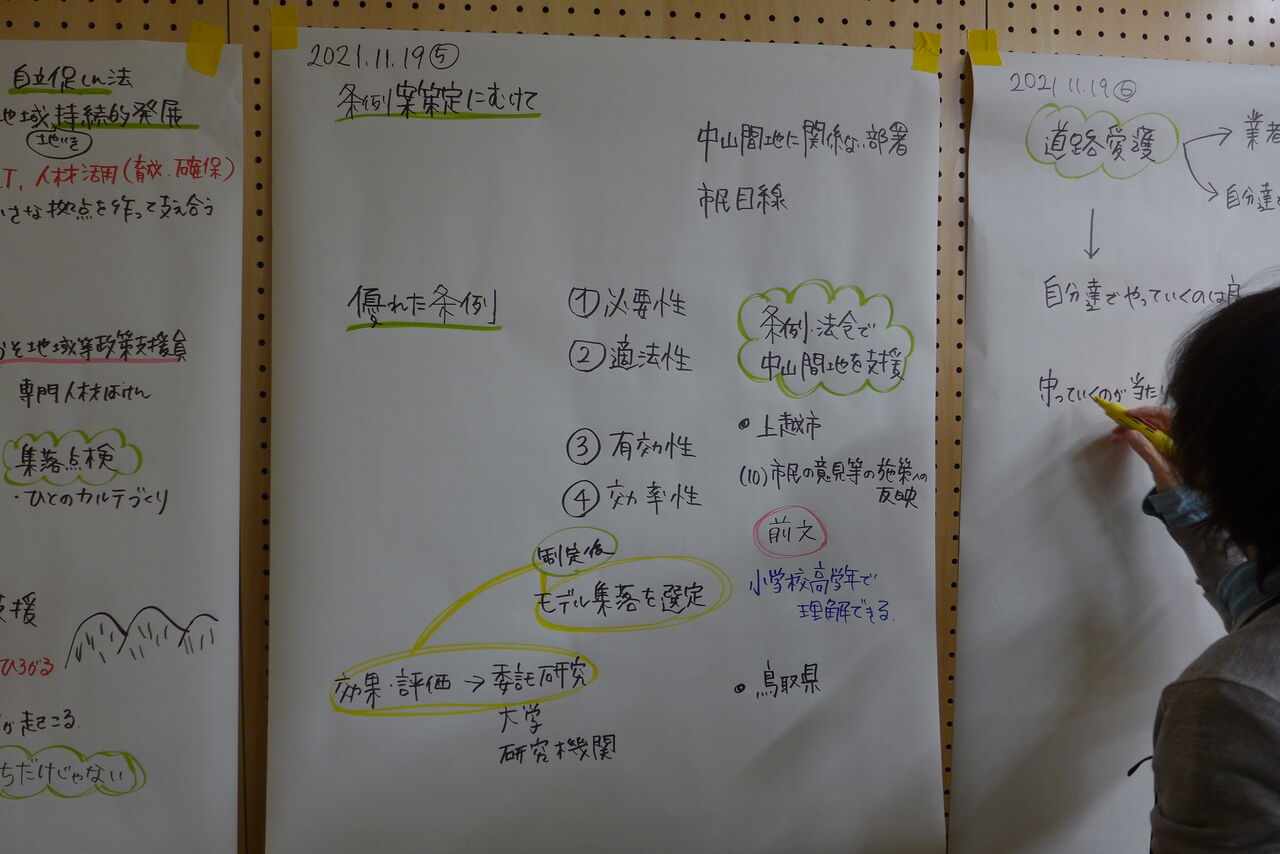 自立促しん法
地域、持続的発展
地いき
人材活用(育成・確保)
さな拠点を作って支え合う
地域等政策支援員
専門人材はけん
集落点検
・ひとのカルテづくり
支援
ひろがる
が起こる
ちだけじゃない
2021.11.19⑤
条例案策定にむけて
中山間地に関係ない部署
市民目線
優れた条例
①必要性
②適法性
③有効性
④効率性
条例・法令で
中山間地を支援
・上越市
(10)市民の意見等の施策への
反映
前文
小学校高学年で
理解できる
・鳥取県
制定後
モデル集落を選定
効果・評価→委託研究
大学
研究機関
2021 11.19⑥
道路愛護
業者
自分達
自分達でやっていくのは
守っていくのが当たり